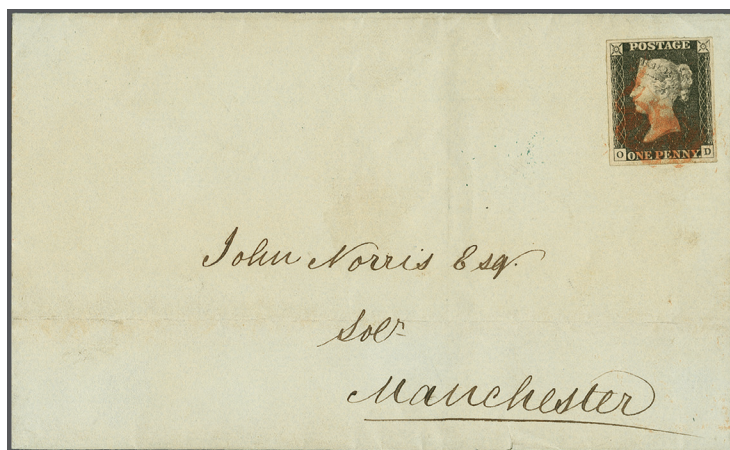 POSTAGE
O ONE PENNY D
John Norris Esqr.
Solr
Manchester